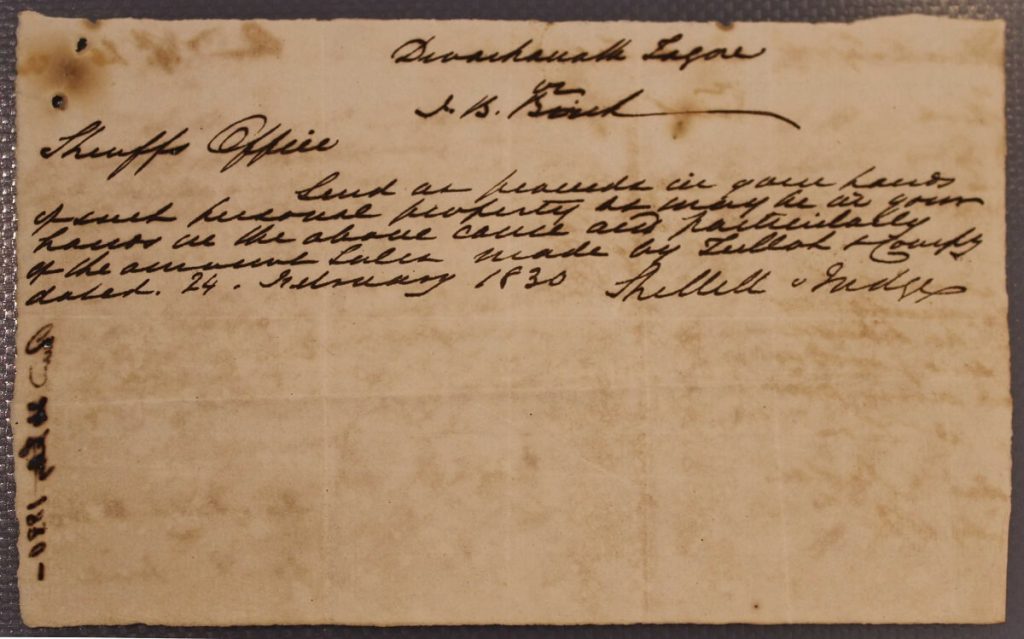 Dwarkanath Tagore
vs
J. B. Birch
Sheriffs Office
Send as proceeds in your hands
of such personal property as may be in your
hands in the above cause and particularly
of the amount Sales made by Tulloh & Compy
dated. 24. February 1830